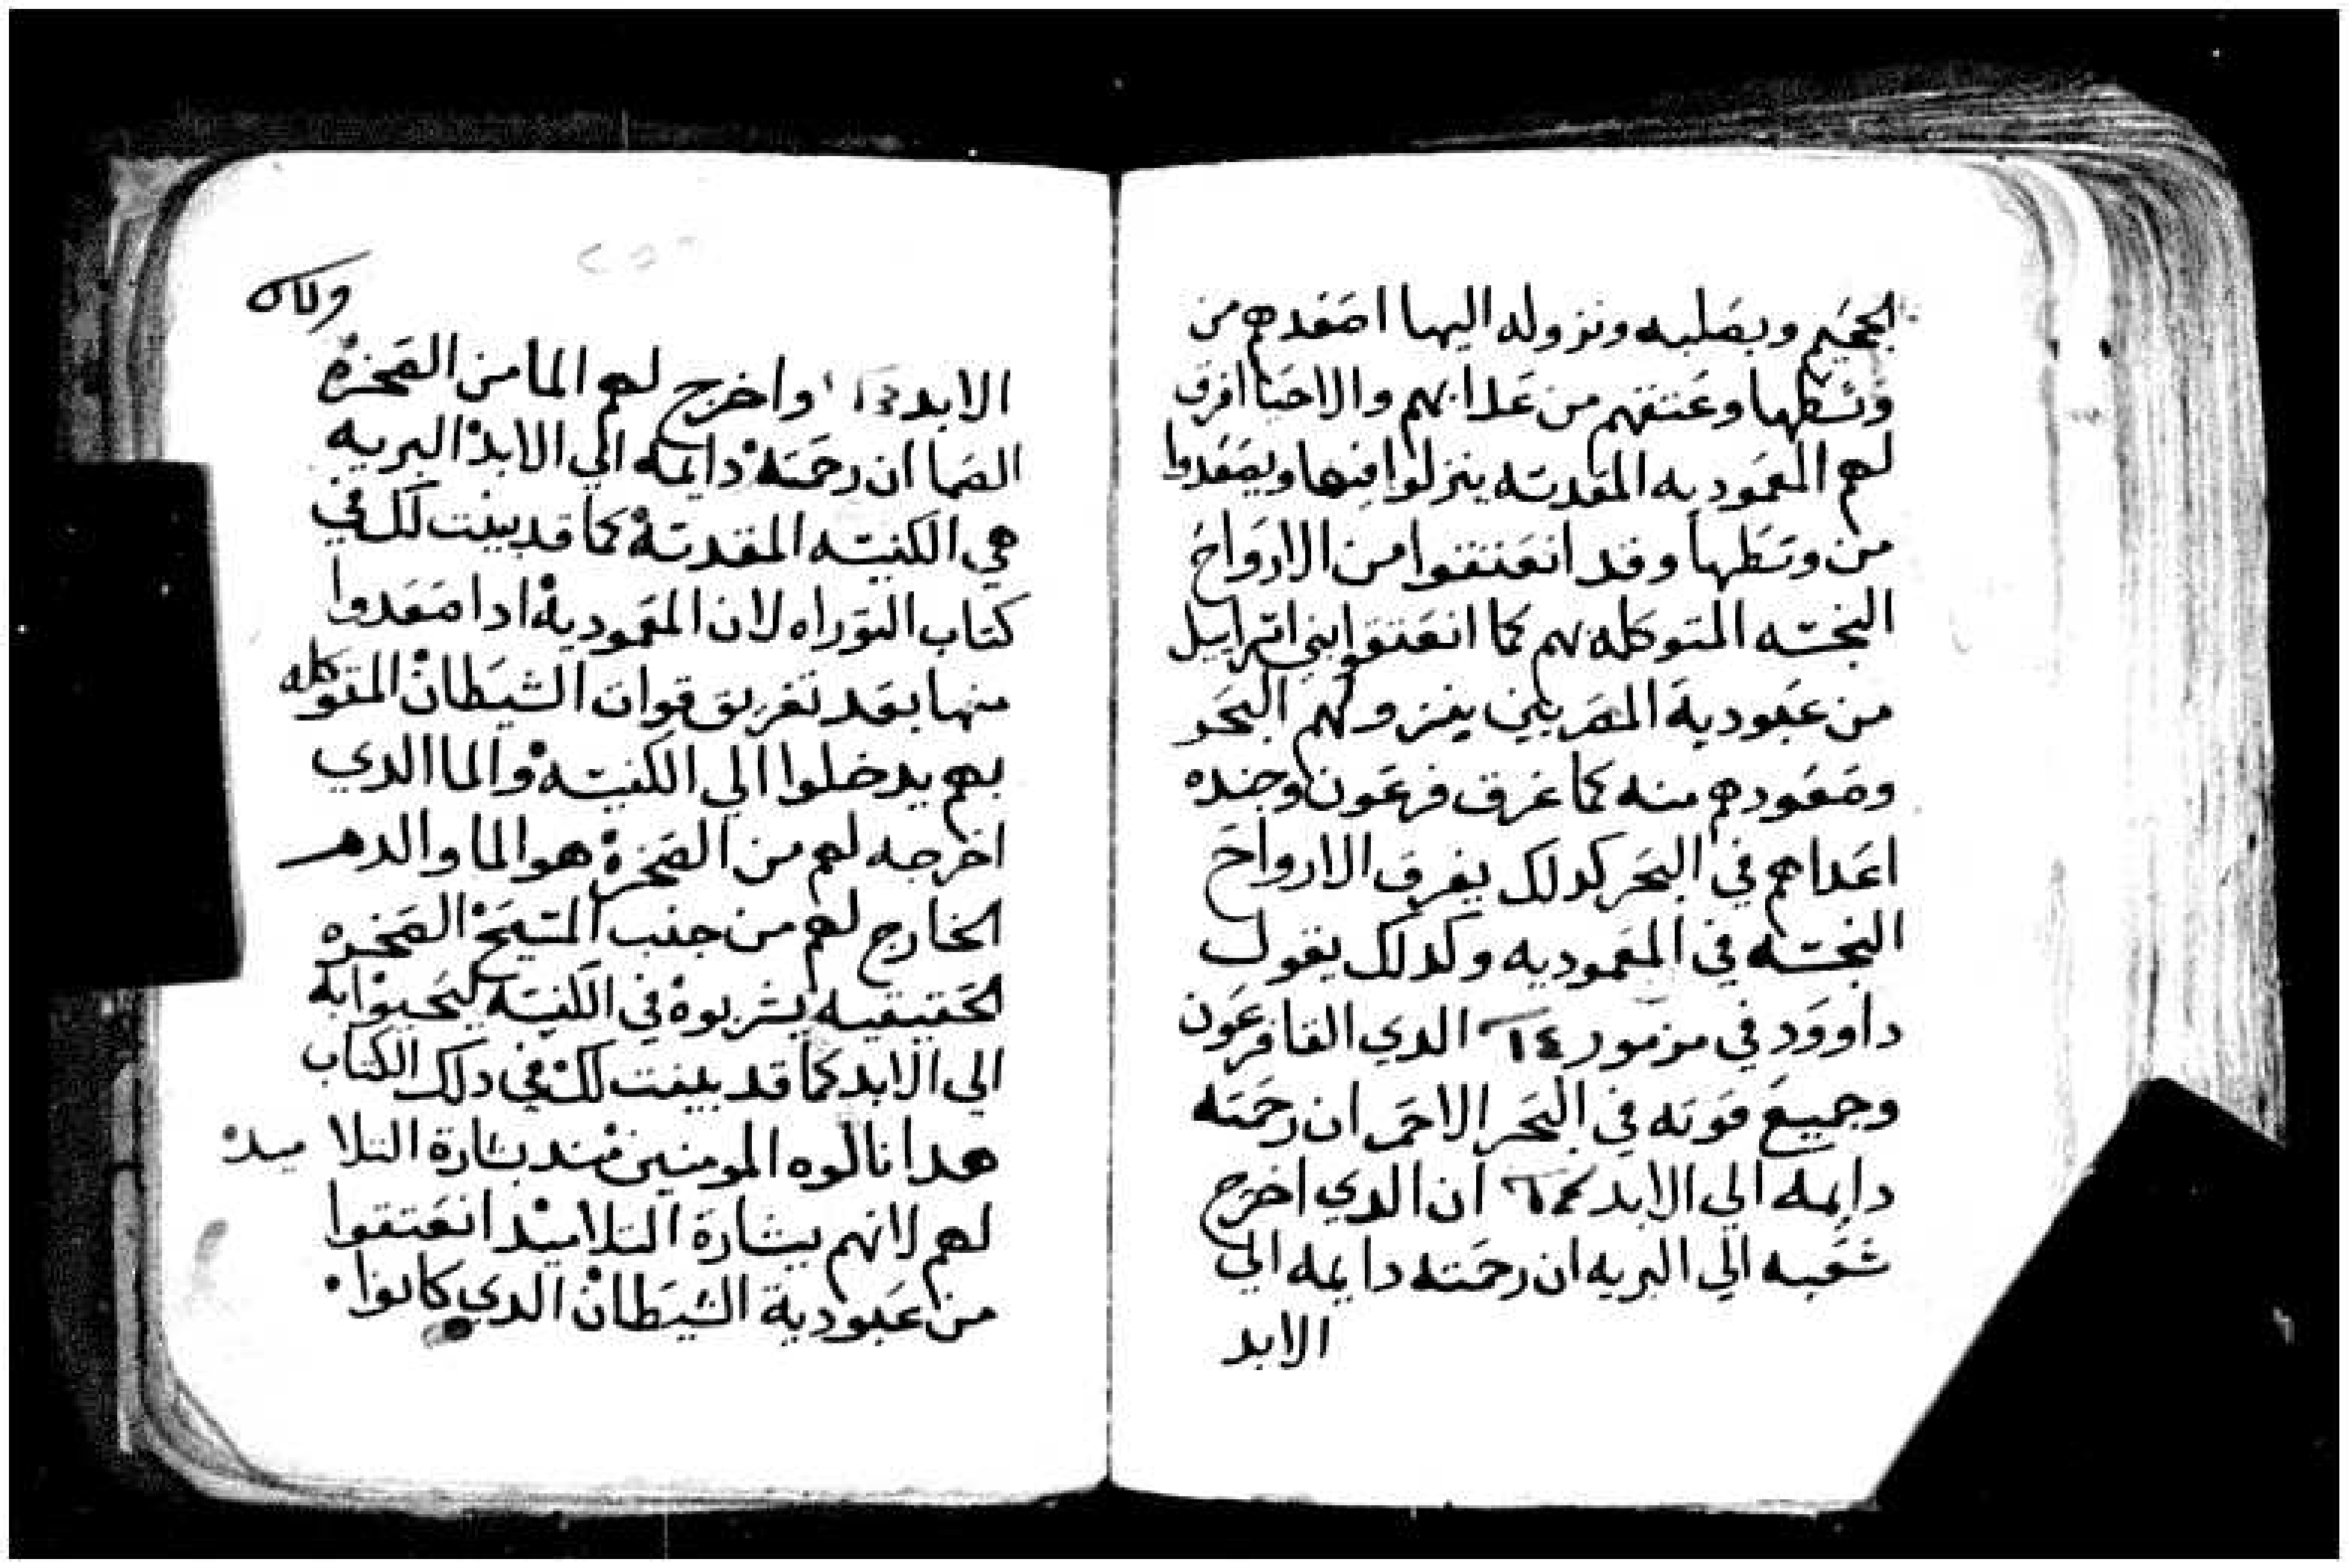 الجحيم وبصلبه ونزوله اليها اصعدهم من
وسطها وعتقهم من عدابهم والاحبا افرق
لهم المعموديه المقدسه ينزلوا فيها ويصعدوا
من وسطها وقد انعتقوا من الارواح
النجسه المتوكله بهم كما انعتقوا بني اسراييل
من عبودية المصريين بنزولهم البحر
وصعودهم منه كما غرق فرعون وجنده
اعداهم في البحر كدلك يغرق الارواح
النجسه في المعموديه وكدلك يقول
داوود في مزمور الدي القا فرعون
وجميع قوته في البحر الاحمر ان رحمته
دايمه الي الابد ان الدي اخرج
شعبه الي البريه ان رحمته دايمه الي
الابد
الابد واخرج لهم الما من الصخرة
الصما ان رحمته دايمه الي الابد البريه
هي الكنيسه المقدسة كما قد بينت لك في
كتاب التوراه لان المعمودية ادا صعدوا
منها بعد تغريق قوات الشيطان المتوكله
بهم يدخلوا الي الكنيسة والما الدي
اخرجه لهم من الصخرة هو الما والدم
الخارج لهم من جنب المسيح الصخره
الحقيقيه يشربوه في الكنيسة ليحيوا به
الي الابد كما قد بينت لك في دلك الكتاب
هدا نالوه المومنين مند بشارة التلاميد
لهم لانهم ببشارة التلاميد انعتقوا
من عبودية الشيطان الدي كانوا